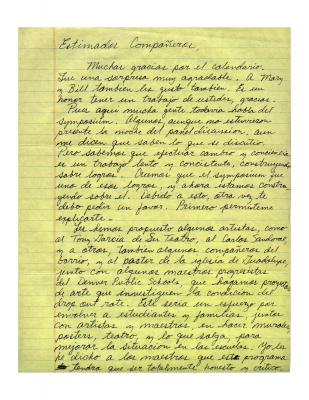 Estimados Compañeros,
Muchas gracias por el calendario.
Fue una sorpresa muy agradable. A Mary
y Bill tambien les gusto tambien. Es un
honor tener un trabajo de ustedes, gracias.
Pues aqui mucha gente todavia habla del
symposium. Algunos, aunque no estuvieron
presente la noche del panel discussion, aun
me dicen que saben lo que se discutio.
Pero sabemos que efectuar cambio y conciencia
es un trabajo lento y conciente, construyendo
sobre logros. Creemos que el symposium fue
uno de esos logros, y ahora estamos constru-
yendo sobre el. Debido a esto, otra vez te
debo pedir un favor. Primero permiteme
explicarte.
Les hemos propuesto algunos artistas, como
al Tony Garcia de Su Teatro, al Carlos
y a otros, tambien algunos compañeros del
barrio, y al pastor de la iglesia de Guadalupe,
junto con algunos maestros progresistas
del Denver Public Schools, que hagamos proyectos
de arte que enmestiguen la condicion del
drop out rate. Este seria un esfuerzo por
envolver a estudiantes y familias, juntos
con artistas y maestros, en hacer murales,
posters, teatro, y lo que salga, para
mejorar la situacion en las escuelas. Yo les
he dicho a los maestros que este programa
tendra que ser totalmente honesto y critico.